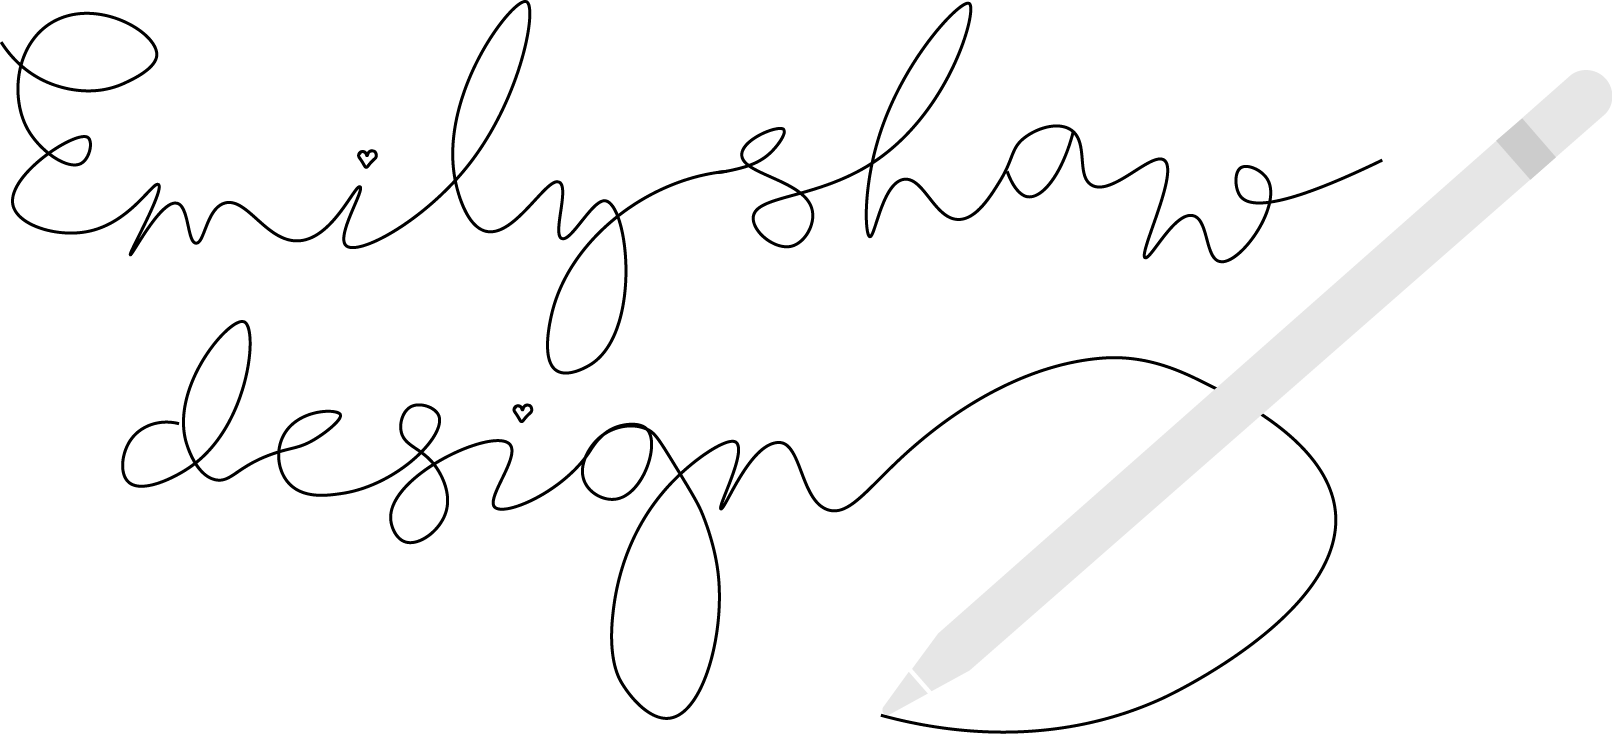 Emily shaw
design